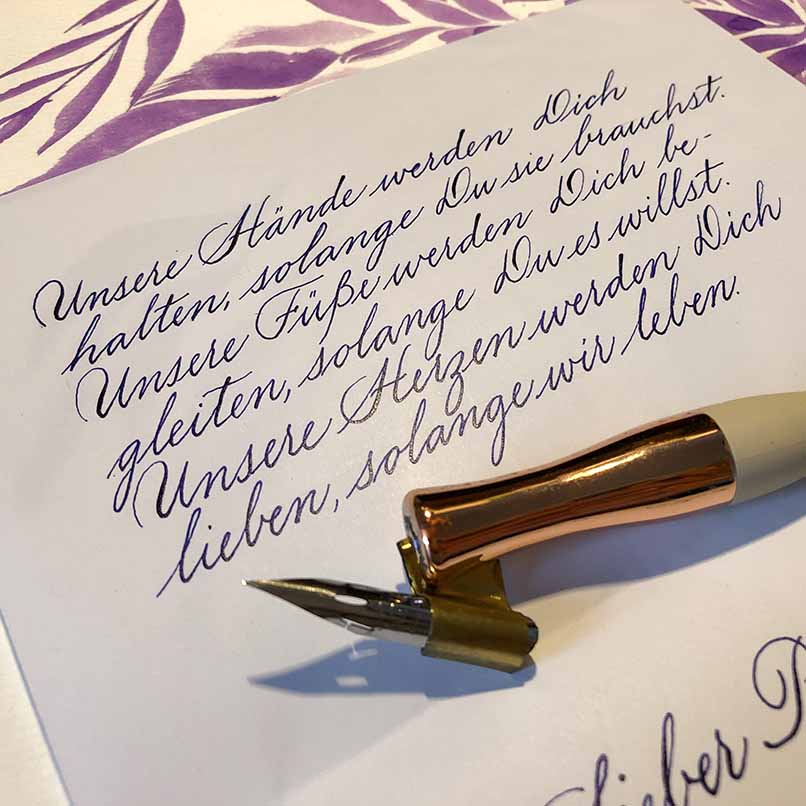 Unsere Hände werden Dich
halten, solange Du sie brauchst.
Unsere Füße werden Dich be-
gleiten, solange Du es willst.
Unsere Herzen werden Dich
lieben, solange wir leben.
Lieber